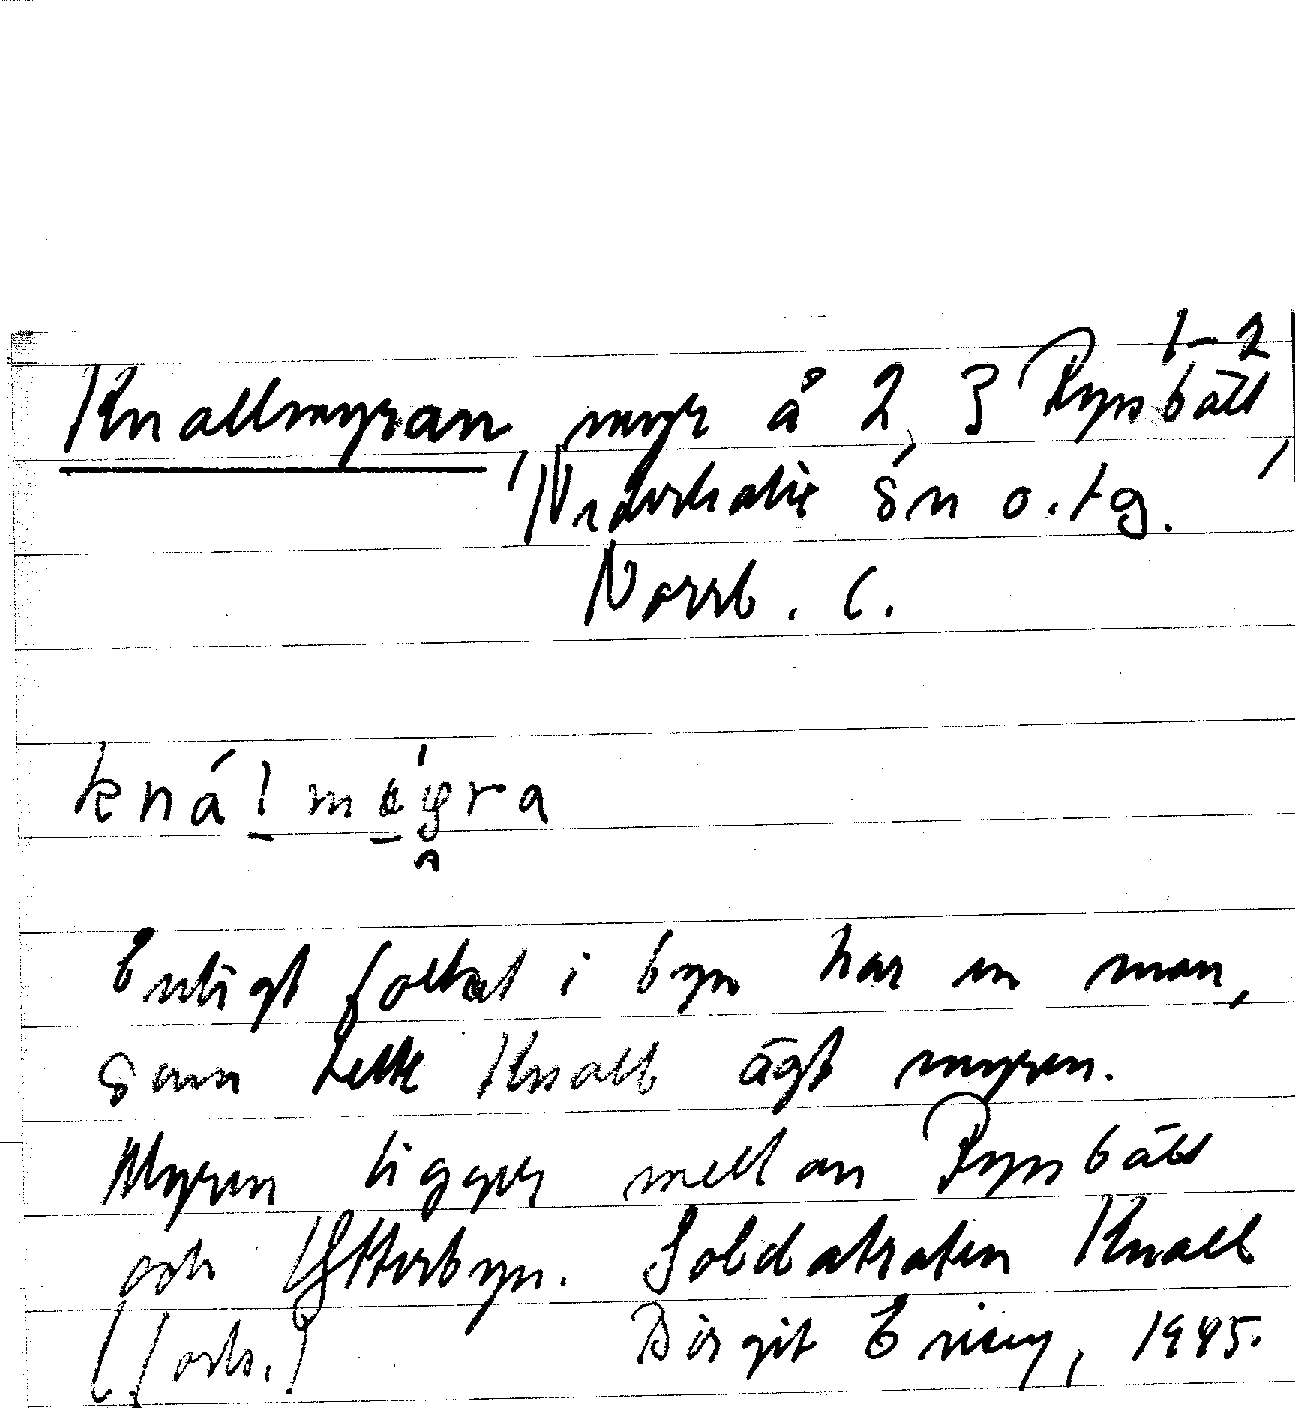 1-2
Knallmyran, myr å 2, 3 Rynbäck,
Nederkalix sn o. tg.
Norrb. l.
knálmýra
Enligt folket i byn har en man,
som hette Knall ägt myren.
Myren ligger mellan Rynbäck
och Ytterbyn. Soldatnamn Knall
(forts.) Birgit Ericy, 1945.